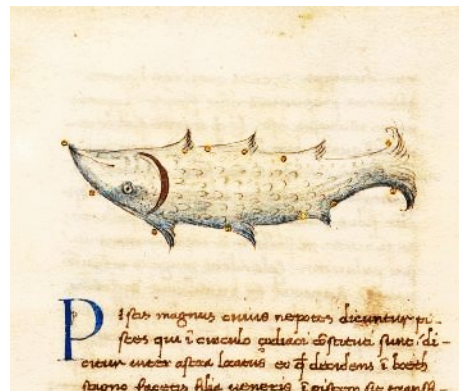 Piscis magnus cuius nepotes dicuntur pi-
sces qui i circulo zodiaci ɔstituti sunt. di-
citur inter astra locatus eo qd decidens i boeth
stagno facetis filia veneris i piscem sit transfi-